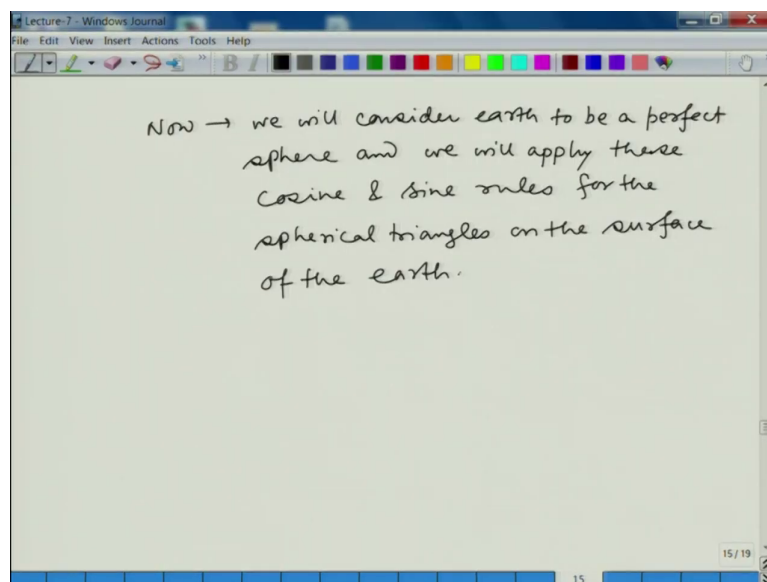 Lecture-7 - Windows Journal
File Edit View Insert Actions Tools Help
B I
Now → we will consider earth to be a perfect
sphere and we will apply these
cosine & sine rules for the
spherical triangles on the surface
of the earth.
15 / 19
15